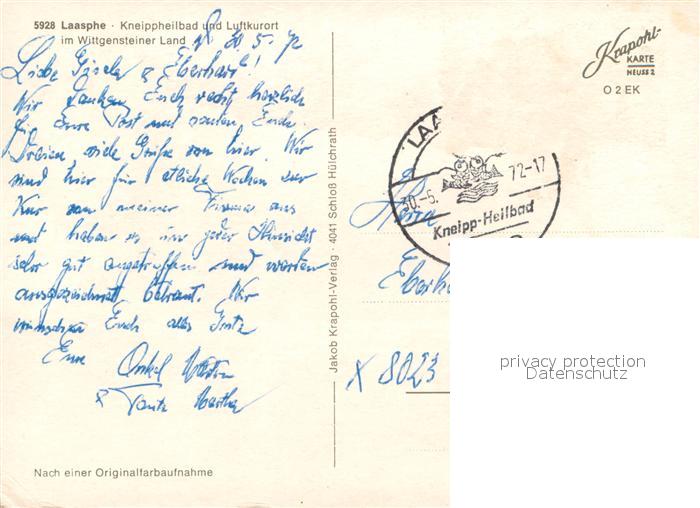 5928 Laasphe · Kneippheilbad und Luftkurort
im Wittgensteiner Land
30.5.72
Liebe Gisela & Eberhard!
Wir danken Euch recht herzlich
für Eure Post und senden Euch
Dreien, viele Grüße von hier. Wir
sind hier für etliche Wochen zur
Kur von meiner Firma aus
und haben es in jeder Hinsicht
sehr gut angetroffen und werden
ausgezeichnet betreut. Wir
wünschen Euch alles Gute
Eure Onkel
& Tante Martha
Nach einer Originalfarbaufnahme
Jakob Krapohl-Verlag · 4041 Schloß Hülchrath
Krapohl-
KARTE
NEUSS 2
O 2 EK
LAA
30.-5. 72-17
Kneipp-Heilbad
Eberha
X 8023
privacy protection
Datenschutz